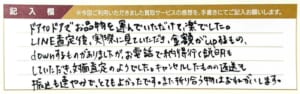 記入欄
※今回ご利用いただきました買取サービスの感想を、手書きにてご記入お願いします。
ドアtoドアでお品物を運んでいただけて、楽でした。
LINE査定後、実際に見ていただき、金額がupなもの、
downなものがありましたが、お電話で折り行く説明も
していただき、対面査定のようでした。キャンセルしたものの返送も
振込も速やかで、とてもよかったです。また折り合う物はおねがいします。